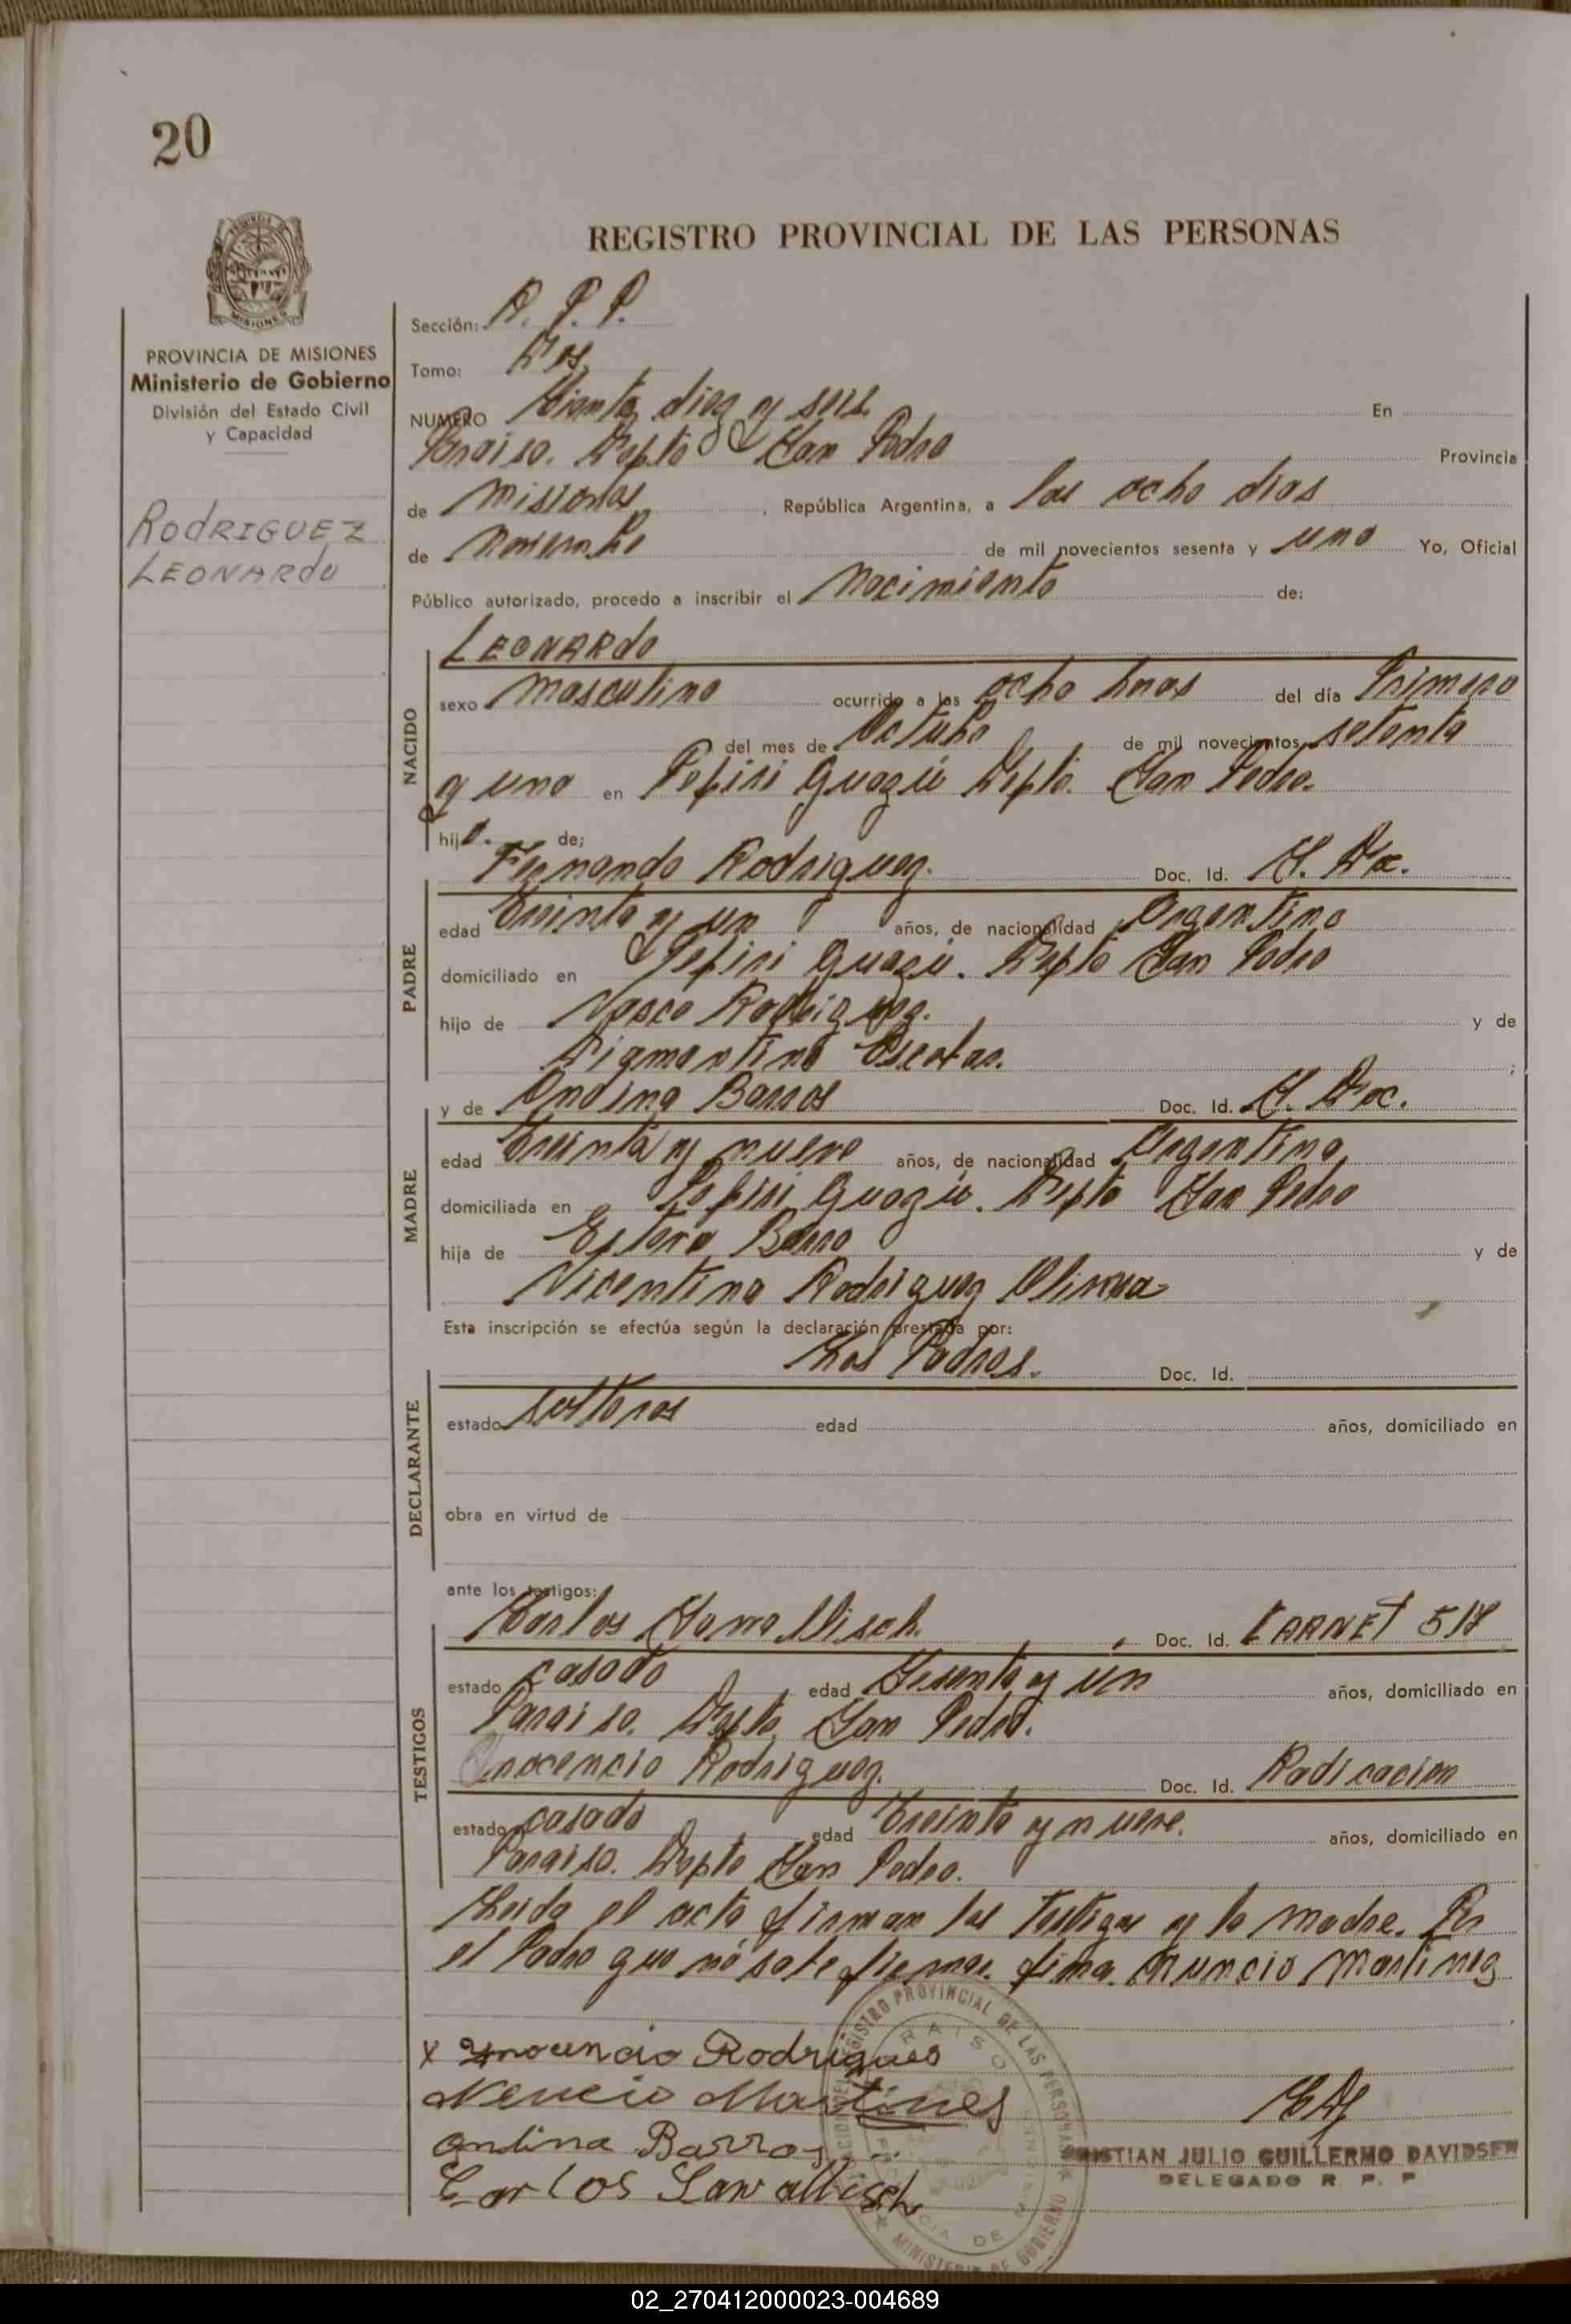 20
REGISTRO PROVINCIAL DE LAS PERSONAS
PROVINCIA DE MISIONES
Ministerio de Gobierno
División del Estado Civil
y Capacidad
RODRIGUEZ
LEONARDO
Sección: R. P. P.
Tomo: Dos
NUMERO diez y seis. En
Paraiso. Depto San Pedro Provincia
de Misiones, República Argentina, a los ocho dias
de Noviembre de mil novecientos sesenta y uno Yo, Oficial
Público autorizado, procedo a inscribir el Nacimiento de:
NACIDO
LEONARDO
sexo masculino ocurrido a las ocho horas del día Primero
del mes de Octubre de mil novecientos setenta
y uno en Pepiri Guazú Depto. San Pedro.
hijo. de;
PADRE
Fernando Rodriguez. Doc. Id.
edad Treinta y un años, de nacionalidad Argentino
domiciliado en Pepiri Guazú. Depto San Pedro
hijo de Vasco Rodriguez. y de
;
MADRE
y de Andina Barros Doc. Id.
edad Treinta y nueve años, de nacionalidad Argentina
domiciliada en Pepiri Guazú. Depto San Pedro
hija de Barro y de
Vicentina Rodriguez
Esta inscripción se efectúa según la declaración prestada por:
DECLARANTE
Los Padres. Doc. Id.
estado solteros edad años, domiciliado en
obra en virtud de
ante los testigos:
TESTIGOS
Carlos Sawallisch. Doc. Id. CARNET
estado casado edad Sesenta y un años, domiciliado en
Paraiso. Depto. San Pedro.
Inocencio Rodriguez. Doc. Id. Radicacion
estado casado edad Treinta y nueve. años, domiciliado en
Paraiso. Depto San Pedro.
Leida el acta firman los Testigos y la madre. Por
el Padre que nó sabe firmar. firma. Nuncio Martinez
x Ynocencio Rodrigues
Martines
Andina Barros
Carlos Sawallisch
CRISTIAN JULIO GUILLERMO DAVIDSEN
DELEGADO R. P. P
REGISTRO PROVINCIAL DE LAS PERSONAS
MINISTERIO DE GOBIERNO
02_270412000023-004689